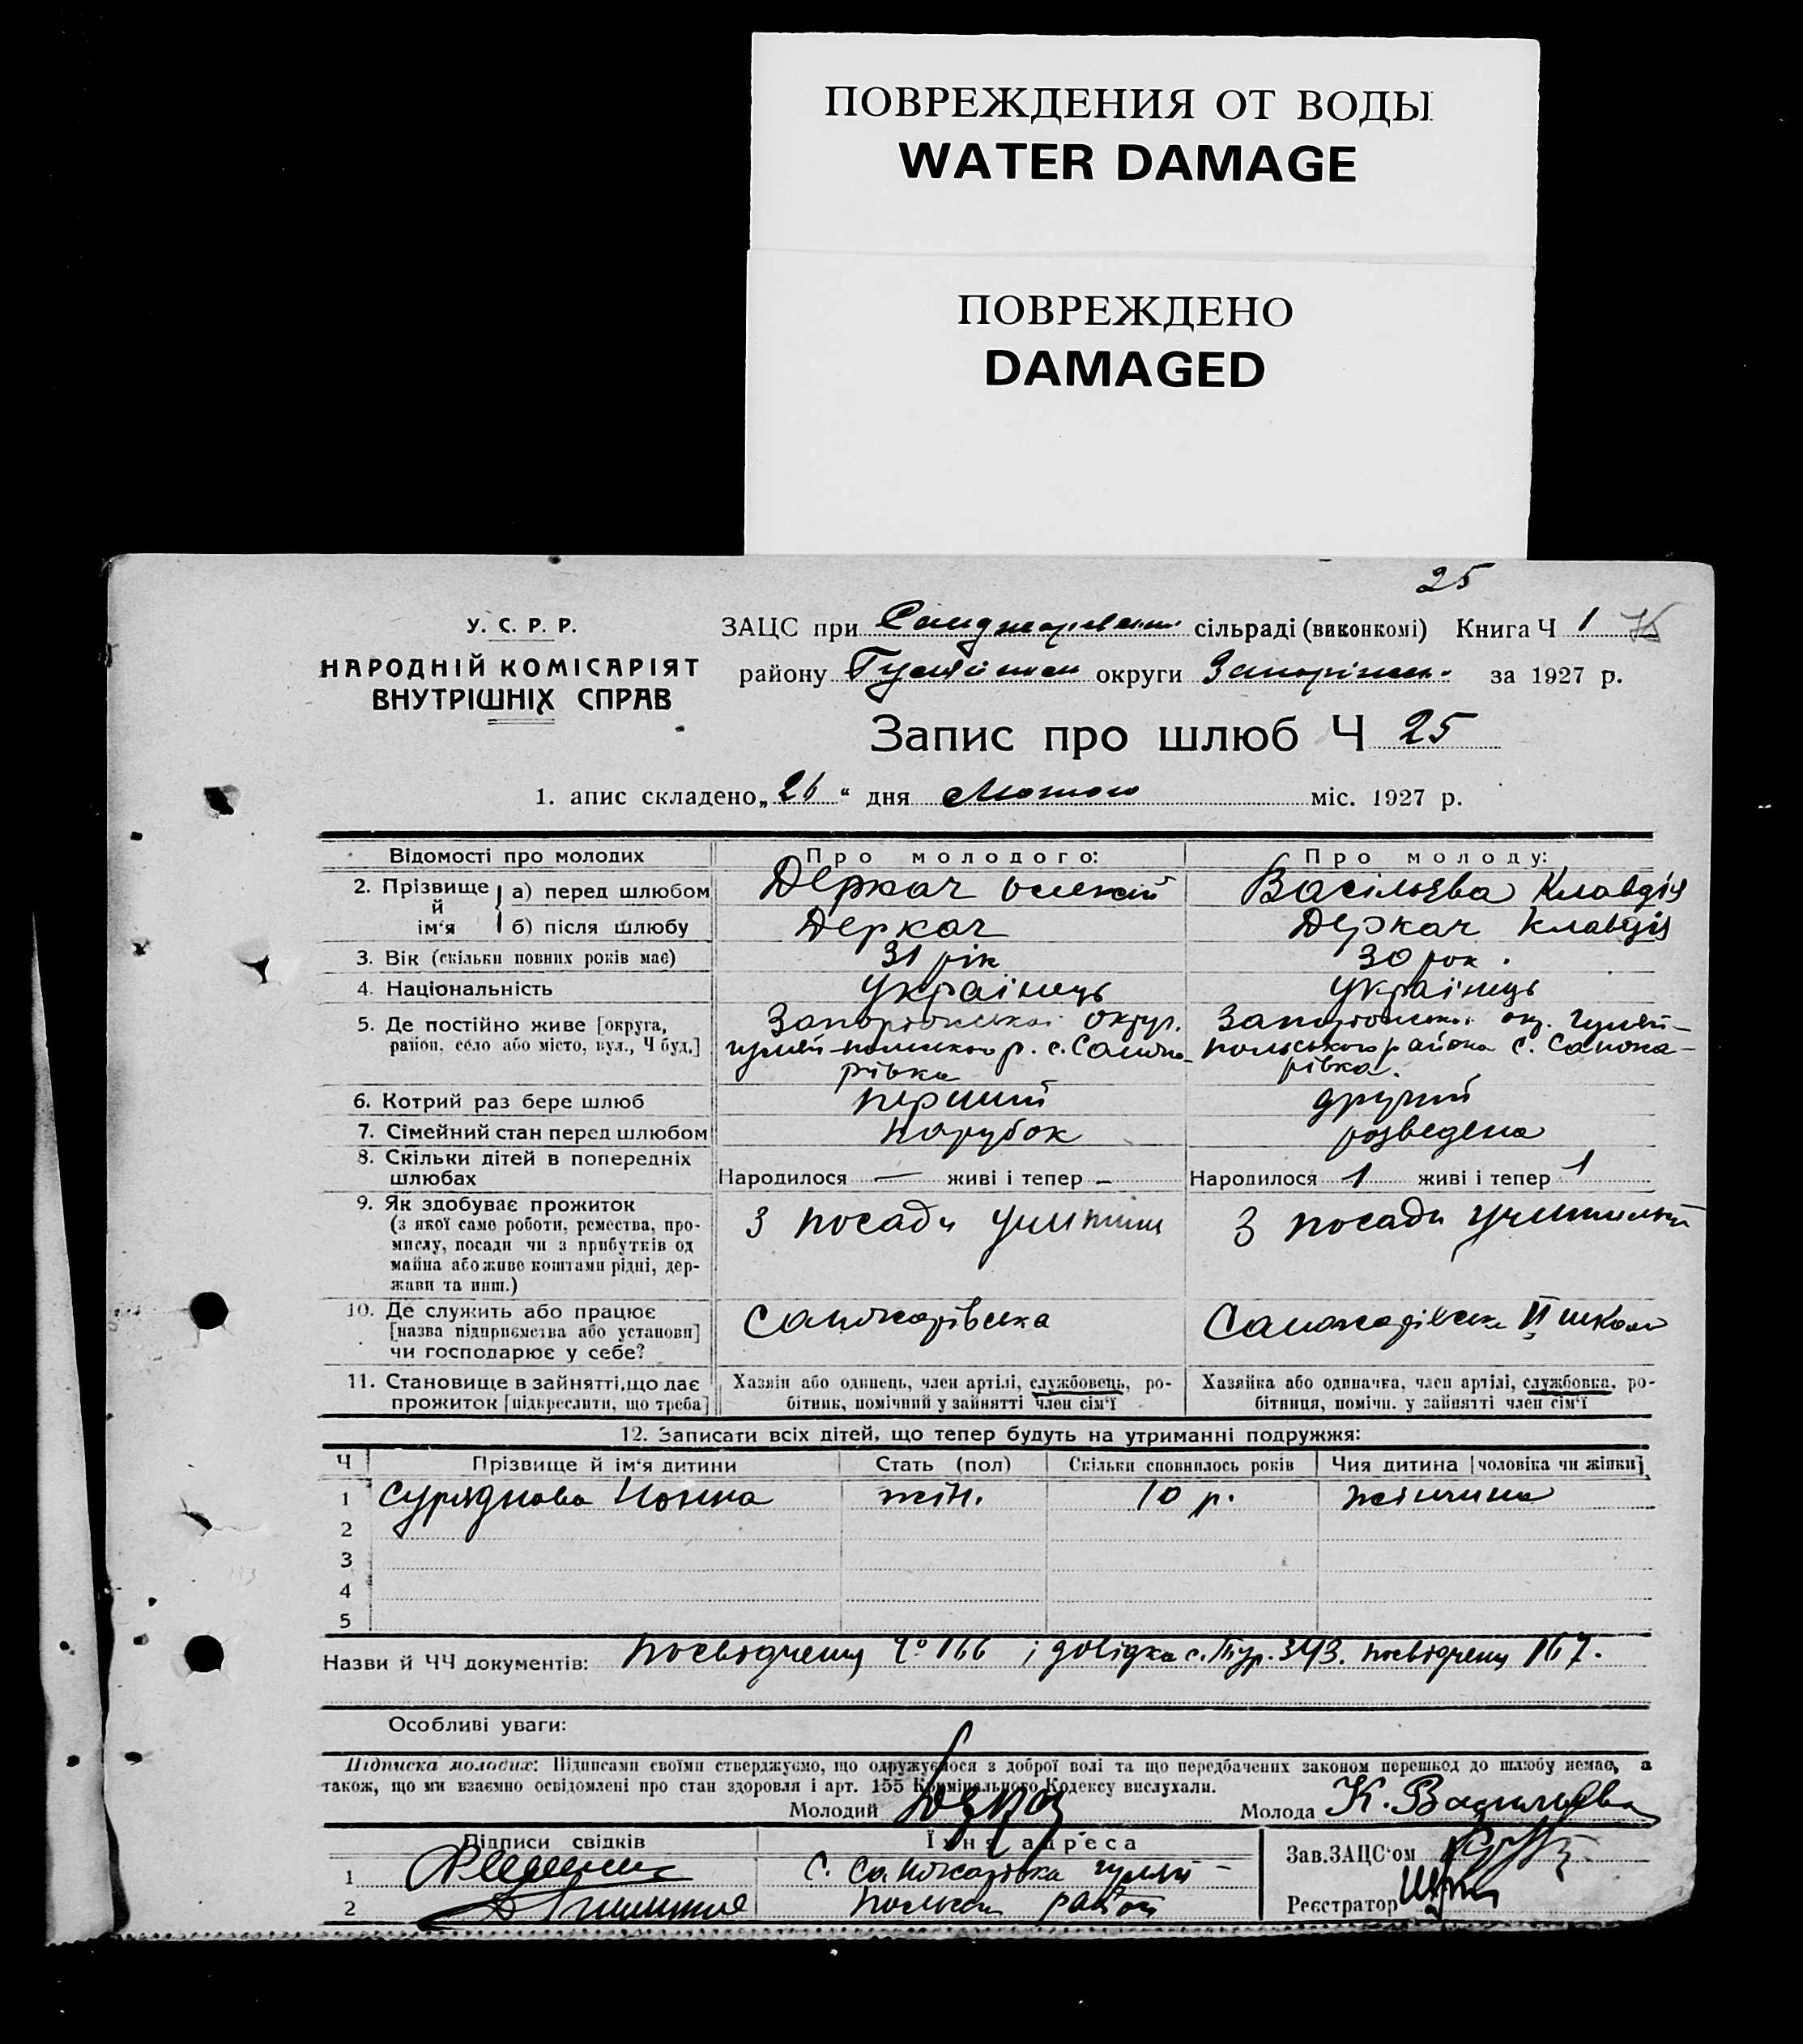 ПОВРЕЖДЕНИЯ ОТ ВОДЫ
WATER DAMAGE
ПОВРЕЖДЕНО
DAMAGED
25
У. С. Р. Р.
НАРОДНІЙ КОМІСАРІЯТ
ВНУТРІШНІХ СПРАВ
ЗАЦС при сільраді (виконкомі) Книга Ч 1
району округи за 1927 р.
Запис про шлюб Ч 25
1. апис складено „26“ дня Лютого міс. 1927 р.
Відомості про молодих Про молодого: Про молоду:
2. Прізвище й ім‘я а) перед шлюбом Деркач Олексій Васільєва Клавдія
б) після шлюбу Деркач Деркач Клавдія
3. Вік (скільки повних років має) 31 рік 30 рок.
4. Національність Українець Українець
5. Де постійно живе [округа, район, село або місто, вул., Ч буд.]
Запоріжської округ. гуляй-польського р. с. Санжарівка
Запоріжської окр. Гуляй-польського района с. Санжарівка.
6. Котрий раз бере шлюб перший другий
7. Сімейний стан перед шлюбом парубок розведена
8. Скільки дітей в попередніх шлюбах Народилося — живі і тепер – Народилося 1 живі і тепер 1
9. Як здобуває прожиток
(з якої саме роботи, ремества, про-
мислу, посади чи з прибутків од
майна або живе коштами рідні, дер-
жави та инш.)
З посади З посади
10. Де служить або працює
[назва підприємства або установи]
чи господарює у себе?
Санжарівська Санжарівська II школа
11. Становище в зайнятті, що дає
прожиток [підкреслити, що треба]
Хазяїн або одинець, член артілі, службовець, ро-
бітник, помічний у зайнятті член сім‘ї
Хазяйка або одиначка, член артілі, службовка, ро-
бітниця, помічн. у зайнятті член сім‘ї
12. Записати всіх дітей, що тепер будуть на утриманні подружжя:
Ч Прізвище й ім‘я дитини Стать (пол) Скільки сповнилось років Чия дитина [чоловіка чи жінки]
1 Нонна жін. 10 р. жінчина
2
3
4
5
Назви й ЧЧ документів: 166 і довідка 343. 167.
Особливі уваги:
Підписка молодих: Підписами своїми стверджуємо, що одружуємося з доброї волі та що передбачених законом перешкод до шлюбу немає, а
також, що ми взаємно освідомлені про стан здоровля і арт. 155 Кримінального Кодексу вислухали.
Молодий Молода К. Васильева
Підписи свідків Їхня адреса
Зав. ЗАЦС‘ом
1 с. Санжарівка гуляй-
2 польськ район
Реєстратор